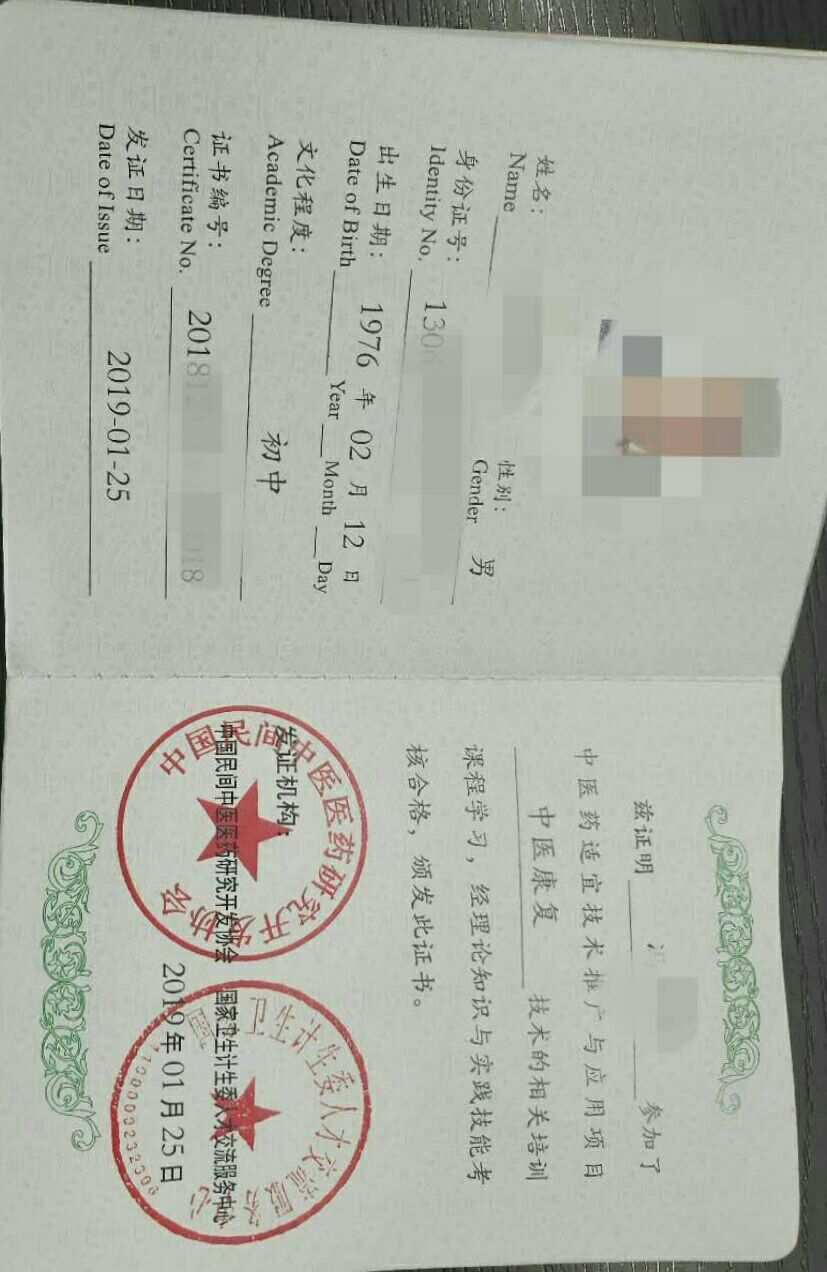 姓名：
Name
性别： 男
Gender
身份证号： 130
Identity No.
出生日期： 1976 年 02 月 12 日
Date of Birth Year Month Day
文化程度： 初中
Academic Degree
证书编号： 201812 018
Certificate No.
发证日期： 2019-01-25
Date of Issue
兹证明 参加了
中医药适宜技术推广与应用项目
中医康复 技术的相关培训
课程学习，经理论知识与实践技能考
核合格，颁发此证书。
发证机构：
中国民间中医医药研究开发协会 国家卫生计生委人才交流服务中心
2019年01月25日
中国民间中医医药研究开发协会
国 卫生计生委人才交流服务中心